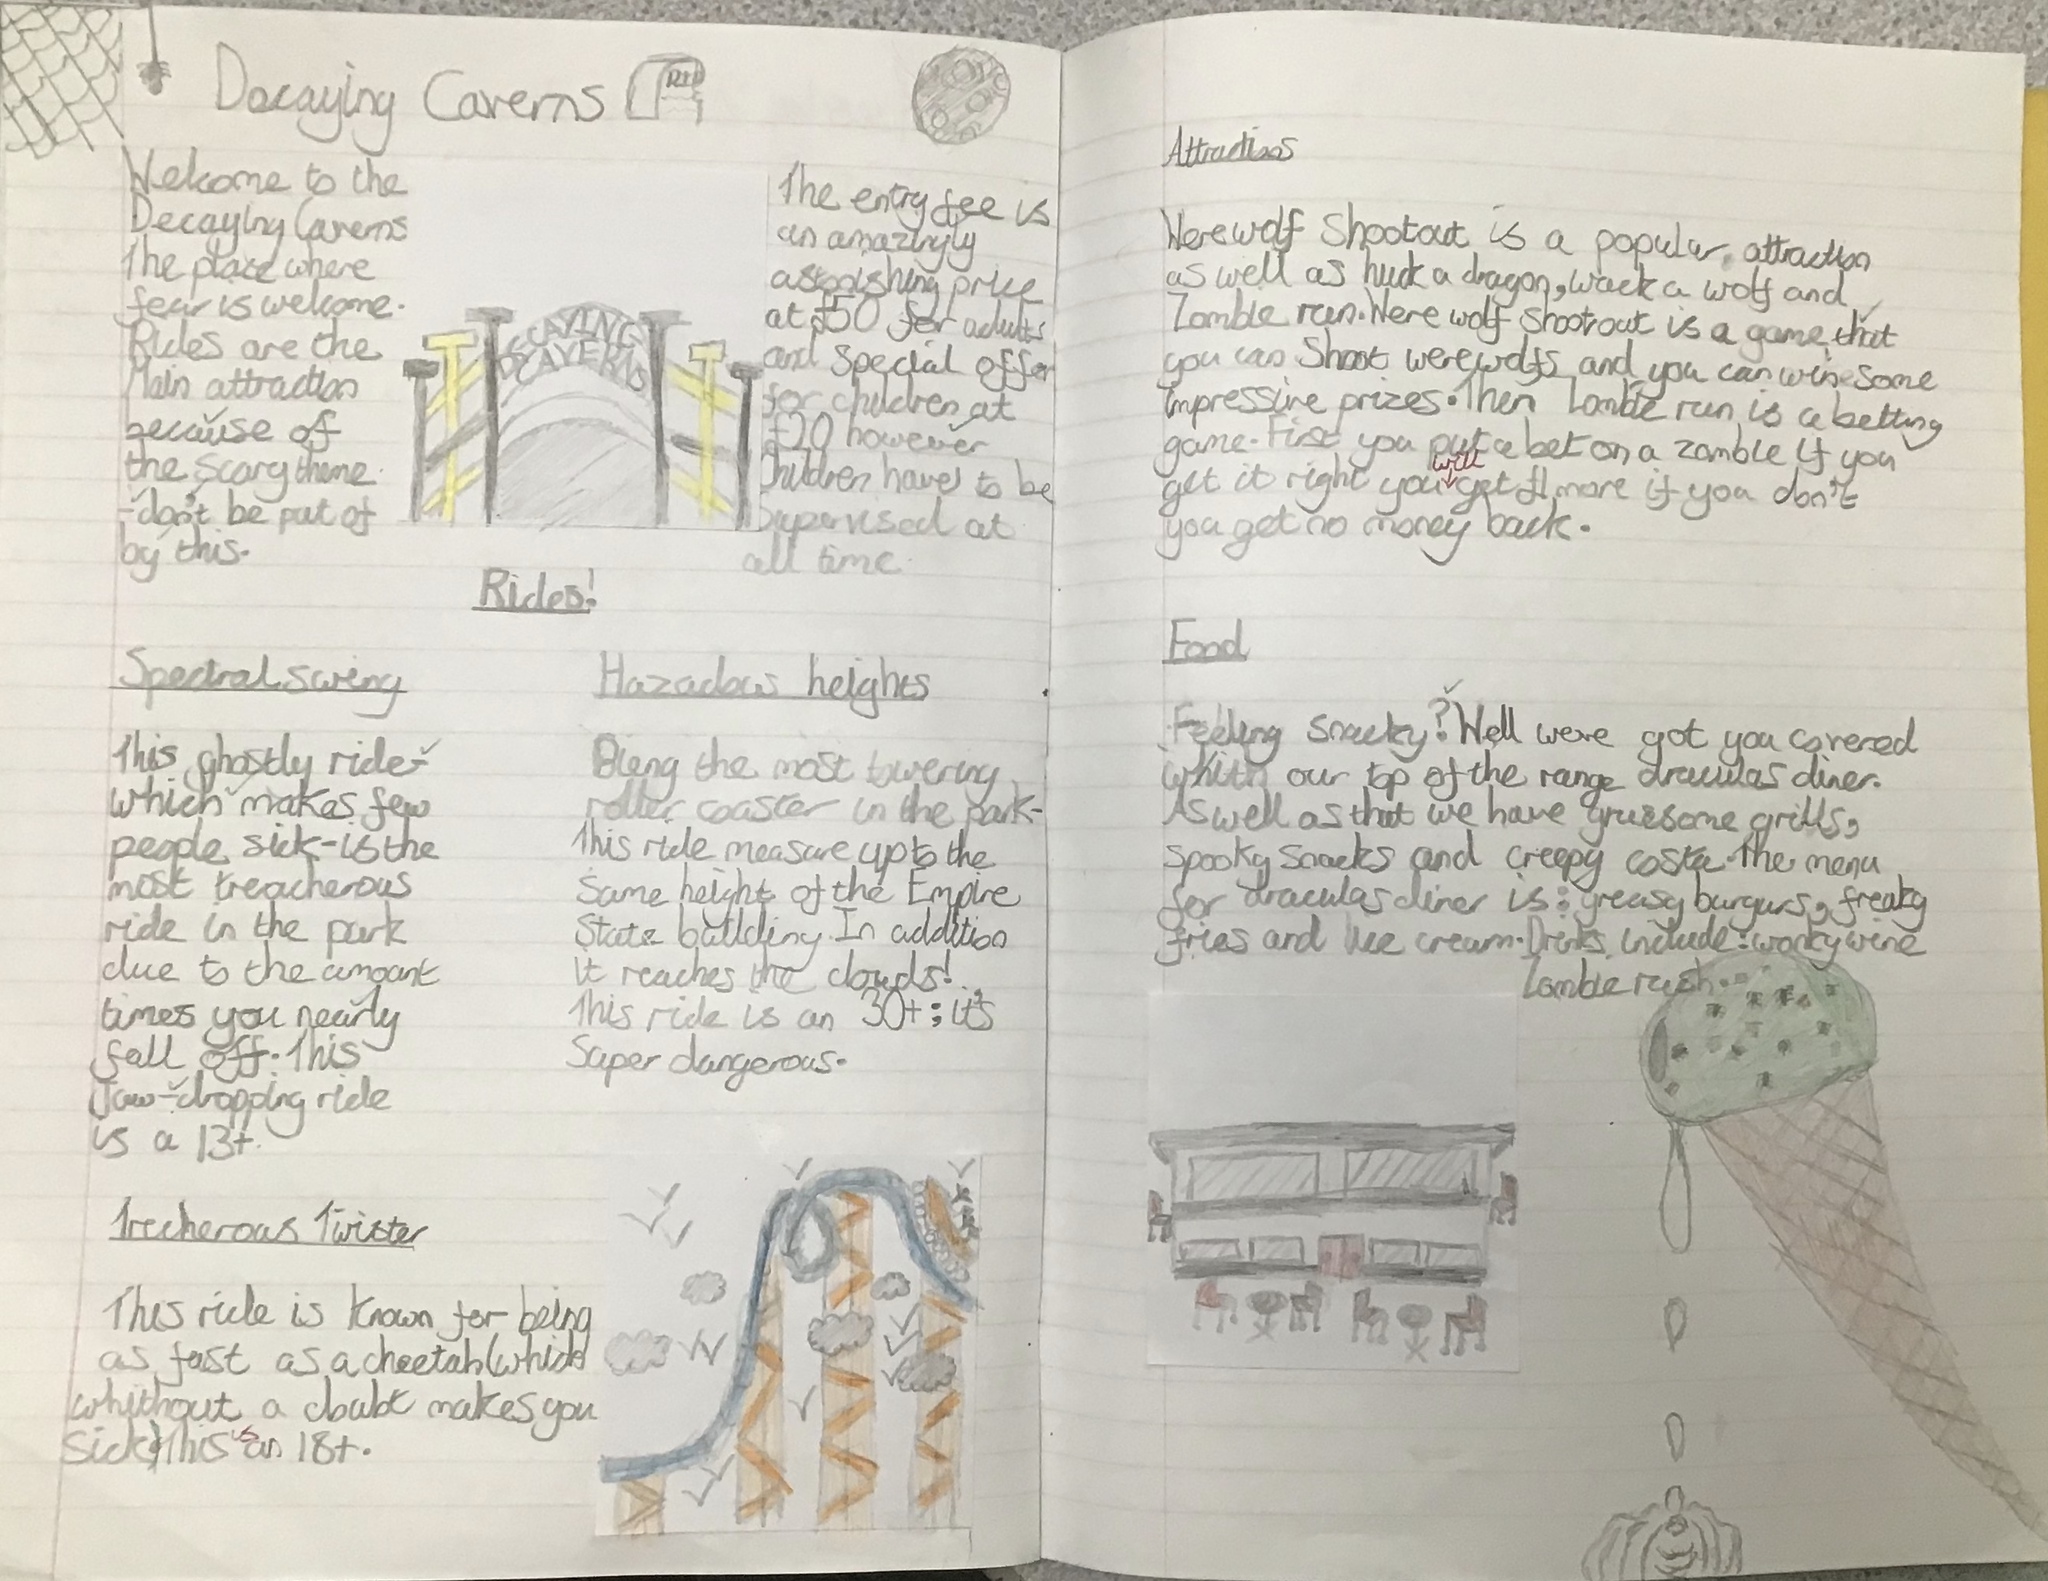 Decaying Caverns
RIP
Welcome to the
Decaying Caverns
The place where
fear is welcome.
Rides are the
Main attraction
because of
the scary theme
-don't be put of
by this.
DECAYING
CAVERNS
The entry fee is
an amazingly
astonishing price
at £50 for adults
and special offer
for children at
£20 however
Children have to be
supervised at
all time.
Rides!
Spectral swing
This ghostly ride-
which makes few
people sick-is the
most treacherous
ride in the park
due to the amount
times you nearly
fall off. This
Jaw-dropping ride
is a 13+.
Hazadous heights
Bieng the most towering
roller coaster in the park-
This ride measure up to the
same height of the Empire
State building. In addition
it reaches the clouds!
This ride is an 30+; it's
Super dangerous.
Trecherous Twister
This ride is known for being
as fast as a cheetah (which
whithout a doubt makes you
sick) This is an 18+.
Attractions
Werewolf Shootout is a popular attraction
as well as huck a dragon, wack a wolf and
Zombie run. Were wolf shootout is a game that
you can Shoot werewolfs and you can win some
impressive prizes. Then Zombie run is a betting
game. First you put a bet on a zombie If you
get it right you will get £1 more if you don't
you get no money back.
Food
Feeling snacky? Well weve got you covered
whith our top of the range draculas diner.
As well as that we have gruesome grills,
spooky snacks and creepy costa. The menu
for draculas diner is: greasy burgurs, freaky
fries and Ice cream. Drinks include: wonky wine
Zombie rush.